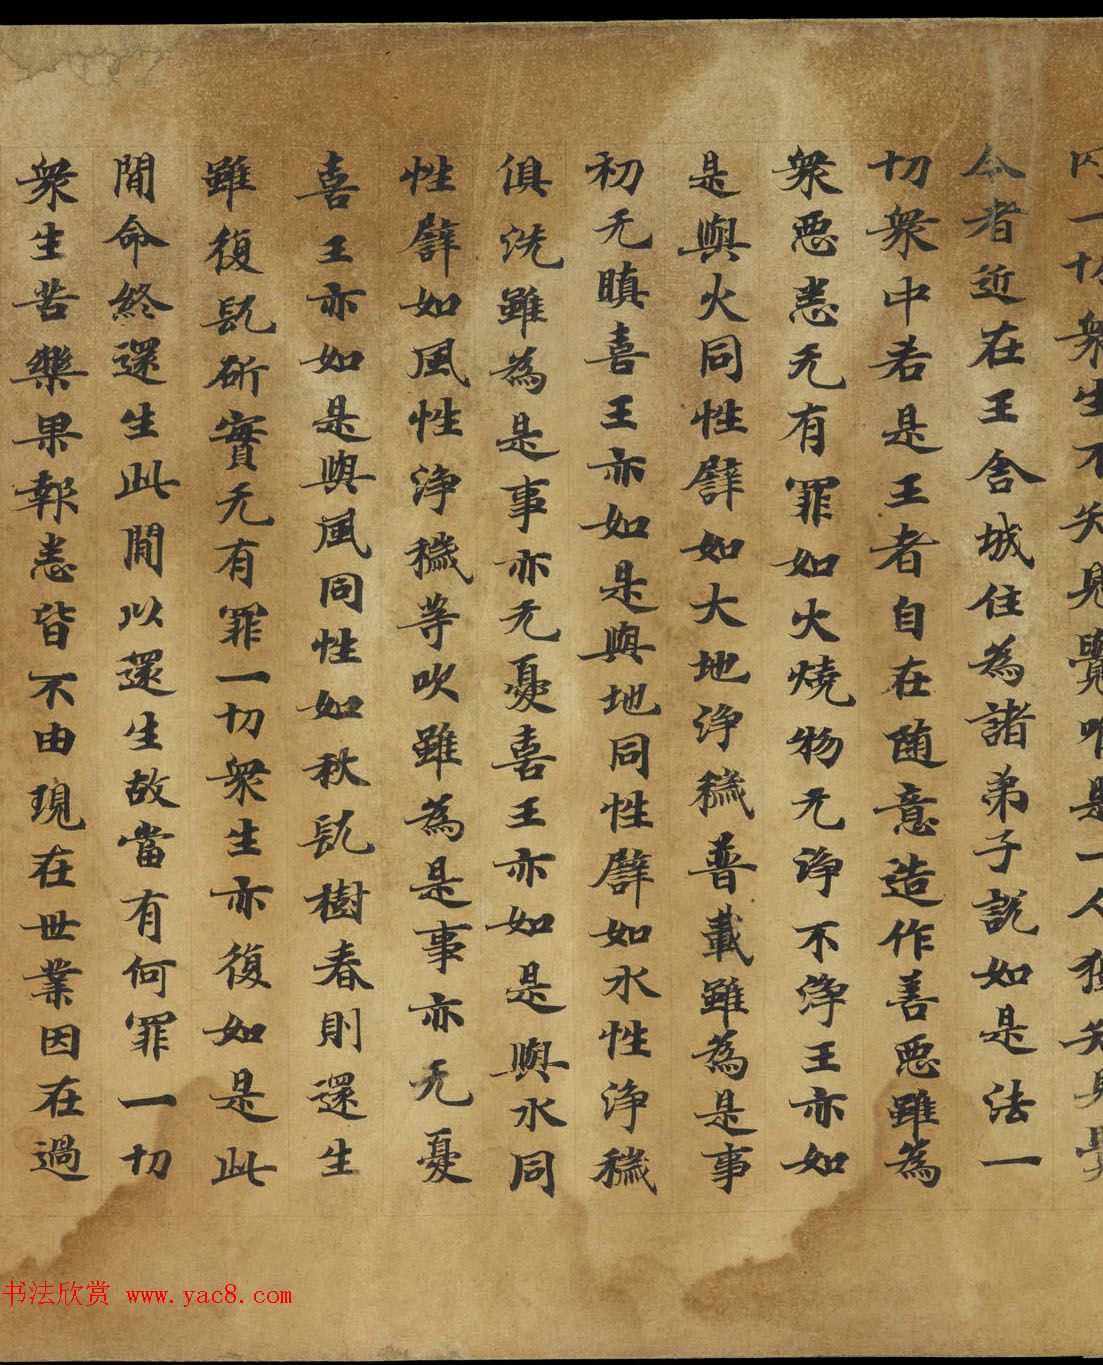 一切衆生不知見覺唯是一人獨知見覺
今者近在王舍城住為諸弟子説如是法一
切衆中若是王者自在随意造作善惡雖為
衆惡悉无有罪如火燒物无淨不淨王亦如
是與火同性譬如大地淨穢普載雖為是事
初无瞋喜王亦如是與地同性譬如水性淨穢
俱洗雖為是事亦无憂喜王亦如是與水同
性譬如風性淨穢等吹雖為是事亦无憂
喜王亦如是與風同性如秋髡樹春則還生
雖復髡斫實无有罪一切衆生亦復如是此
間命終還生此間以還生故當有何罪一切
衆生苦樂果報悉皆不由現在世業因在過
书法欣赏 www.yac8.com